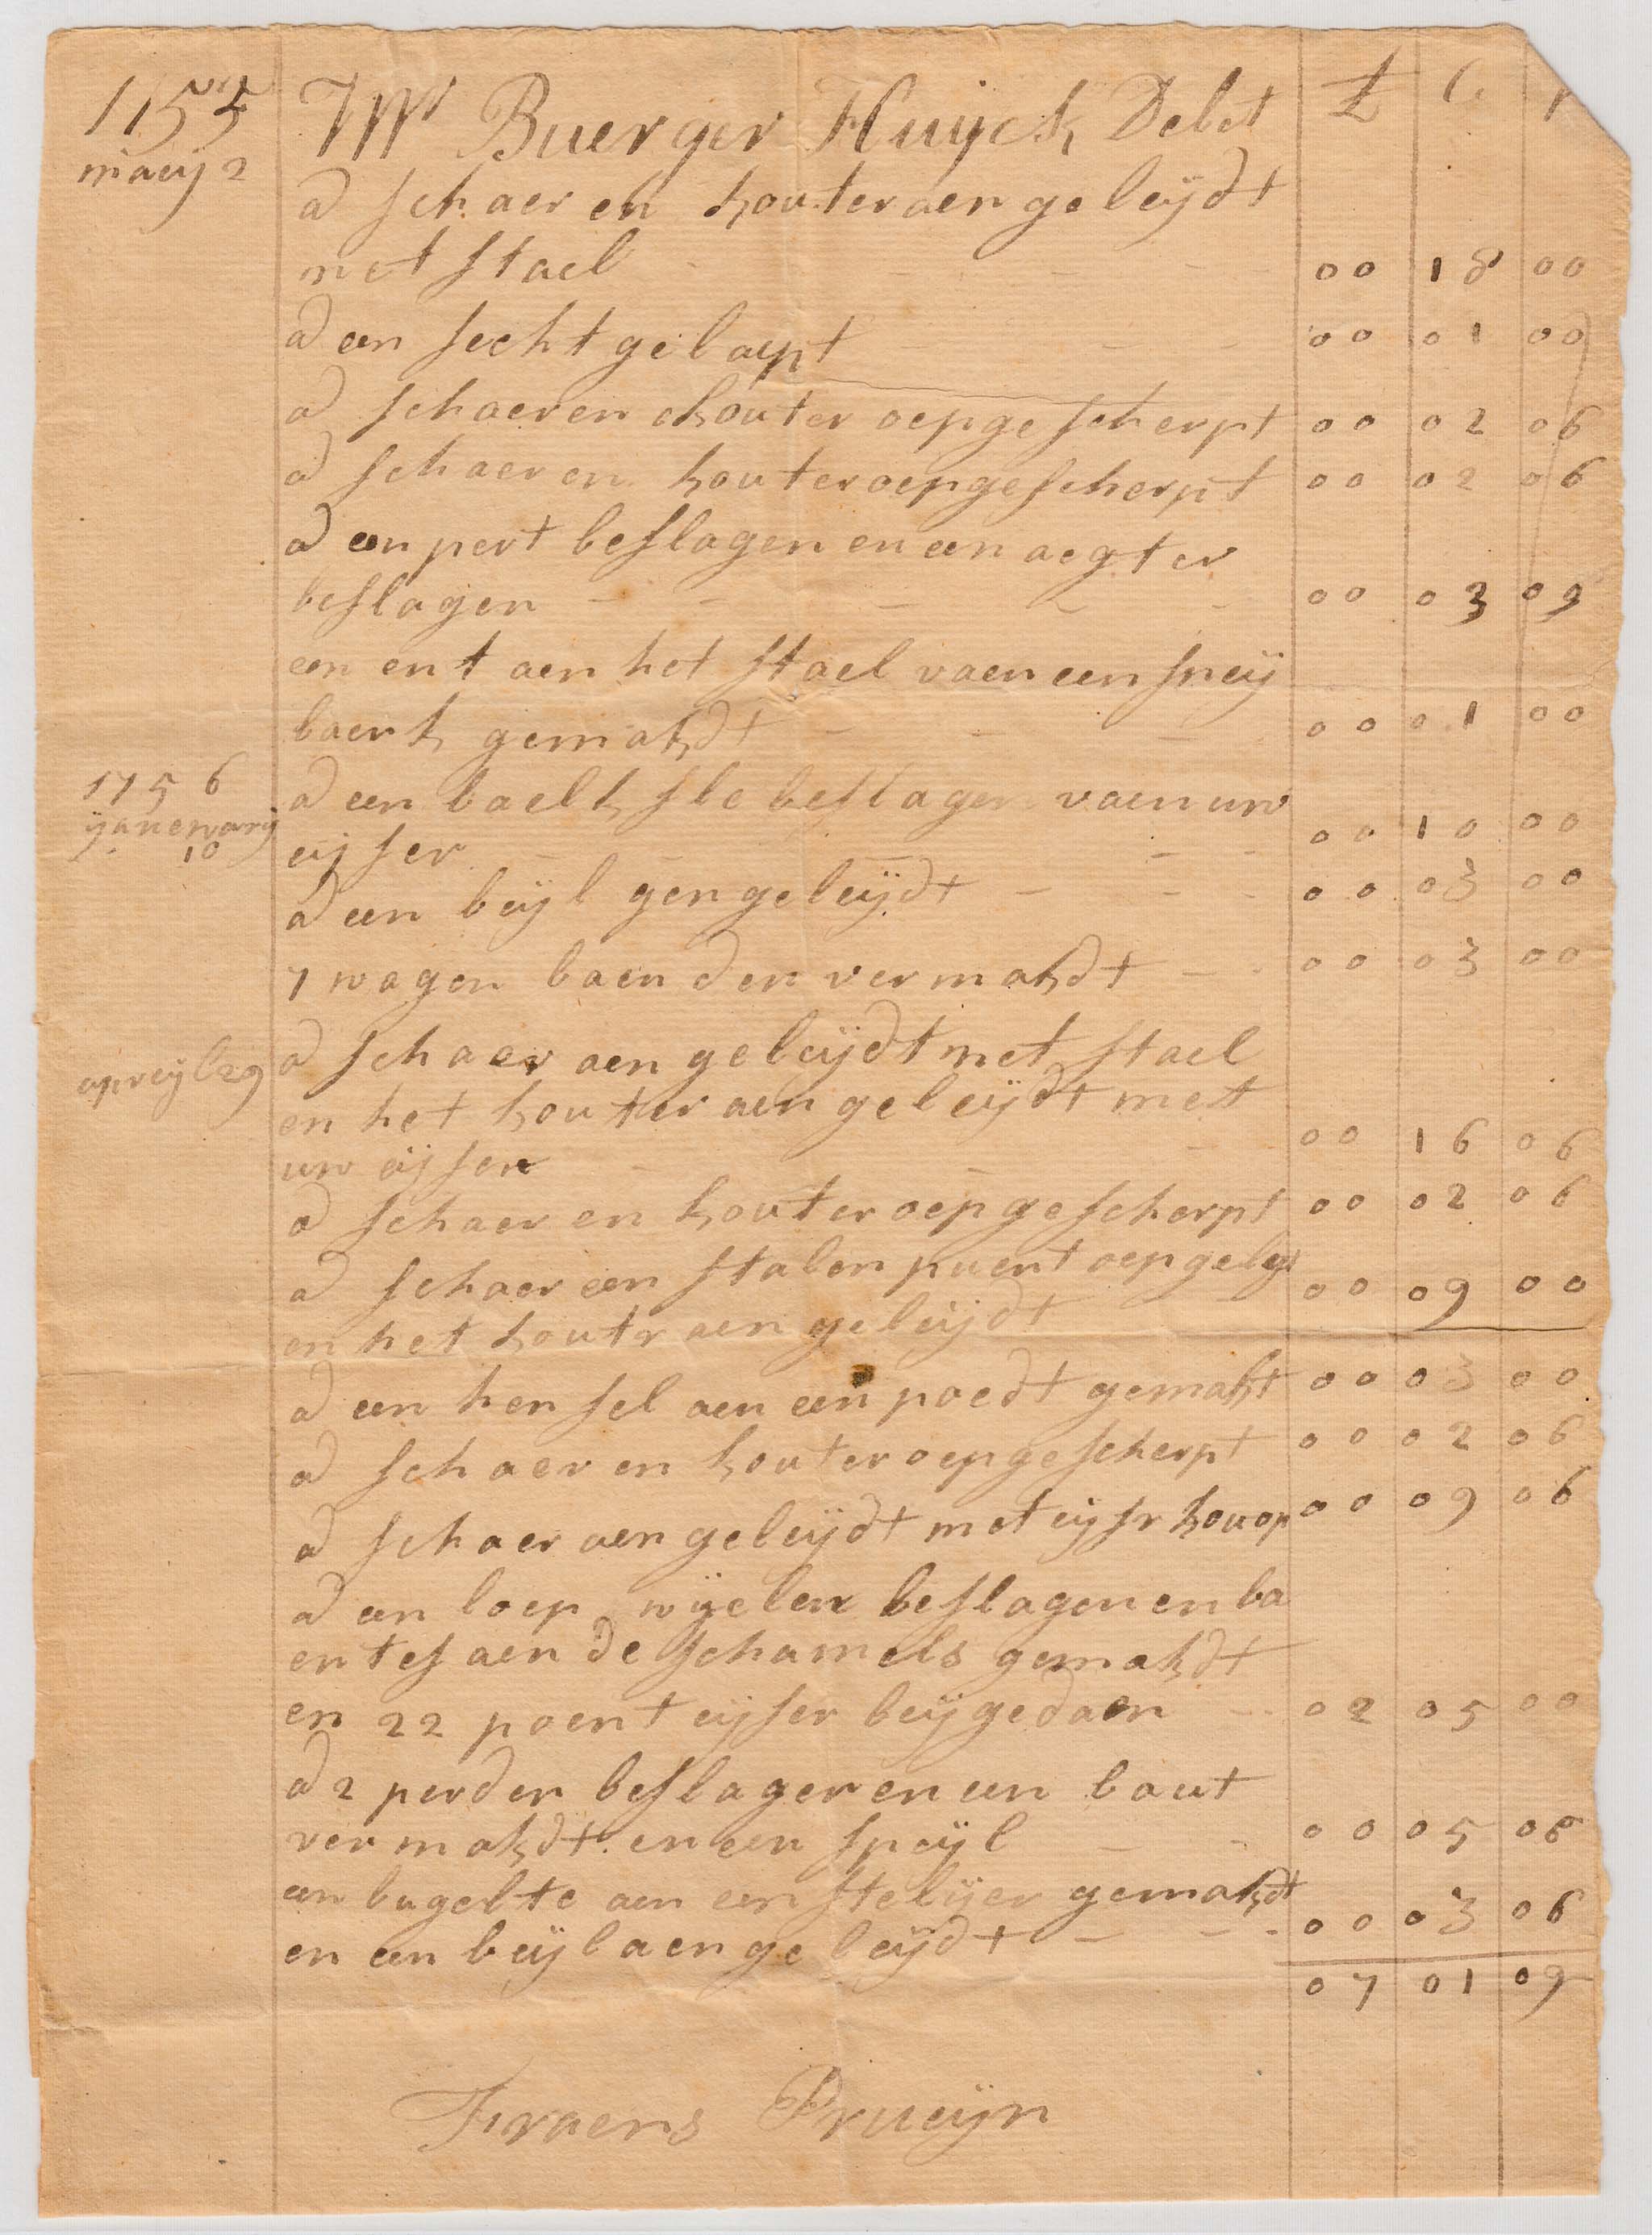 1755 Mr Buerger Huijck Debet £ C P
maeij 2
a schaer en kouter aen geleijdt
met stael 00 18 00
a een secht gelaept 00 01 00
a schaer en kouter oepgescherpt 00 02 06
a schaer en kouter oepgescherpt 00 02 06
a een pert beslagen en een aegter
beslagen 00 03 09
een ent aen het stael vaen een sneij
baenk gemakdt 00 01 00
1756 a een baelk sle beslagen vaen uw
ijanewarij 10 eijser 00 10 00
a een beijl gen geleijdt 00 03 00
7 wagen baenden vermakdt 00 03 00
apreijl 29 a schaer aen geleijdt met stael
en het kouter aen geleijdt mett
uw eijser 00 16 06
a schaer en kouter oepgescherpt 00 02 06
a schaer een stalen puent oepgelegt
en het koutr aen geleijdt 00 09 00
a een hensel aen een poedt gemakt 00 03 00
a schaer en kouter oepgescherpt 00 02 06
a schaer aen geleijdt met eijsr kouop 00 09 06
a een loep wijelen beslagen en ba
entes aen de schamels gemakdt
en 22 poent eijser beijgedaen 02 05 00
a 2 perden beslagen en een bout
vermakdt en een speijl 00 05 06
een bugelte aen een stelijer gemakdt
en een beijl aen geleijdt 00 03 06
07 01 09
Fraens Prueijn